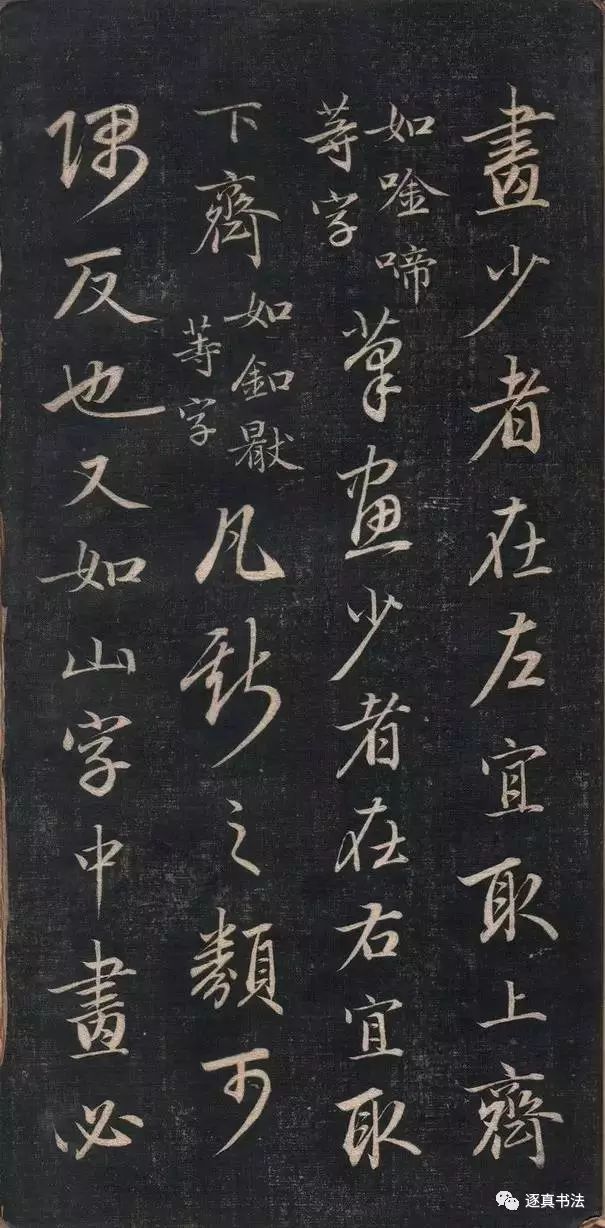 畫少者在左宜取上齊
如唫啼
等字
筆画少者在右宜取
下齊
如釦
等字
凡斯之類可
隅反也又如山字中畫必
逐真书法